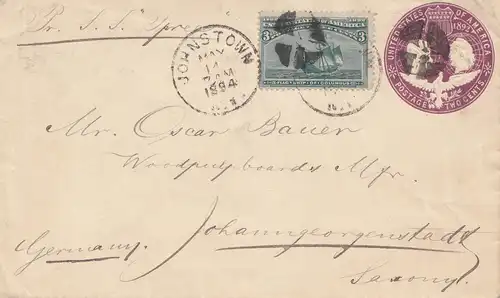 Pr. S.S. "Spree"
JOHNSTOWN
MAY
14
7 AM
1894
N.Y.
3 3
FLAGSHIP OF COLUMBUS
UNITED STATES OF AMERICA
1492 1892
POSTAGE TWO CENTS
Mr. Oscar Bauer
Woodpulpboards Mfr.
Johanngeorgenstadt
Germany.
Saxony.